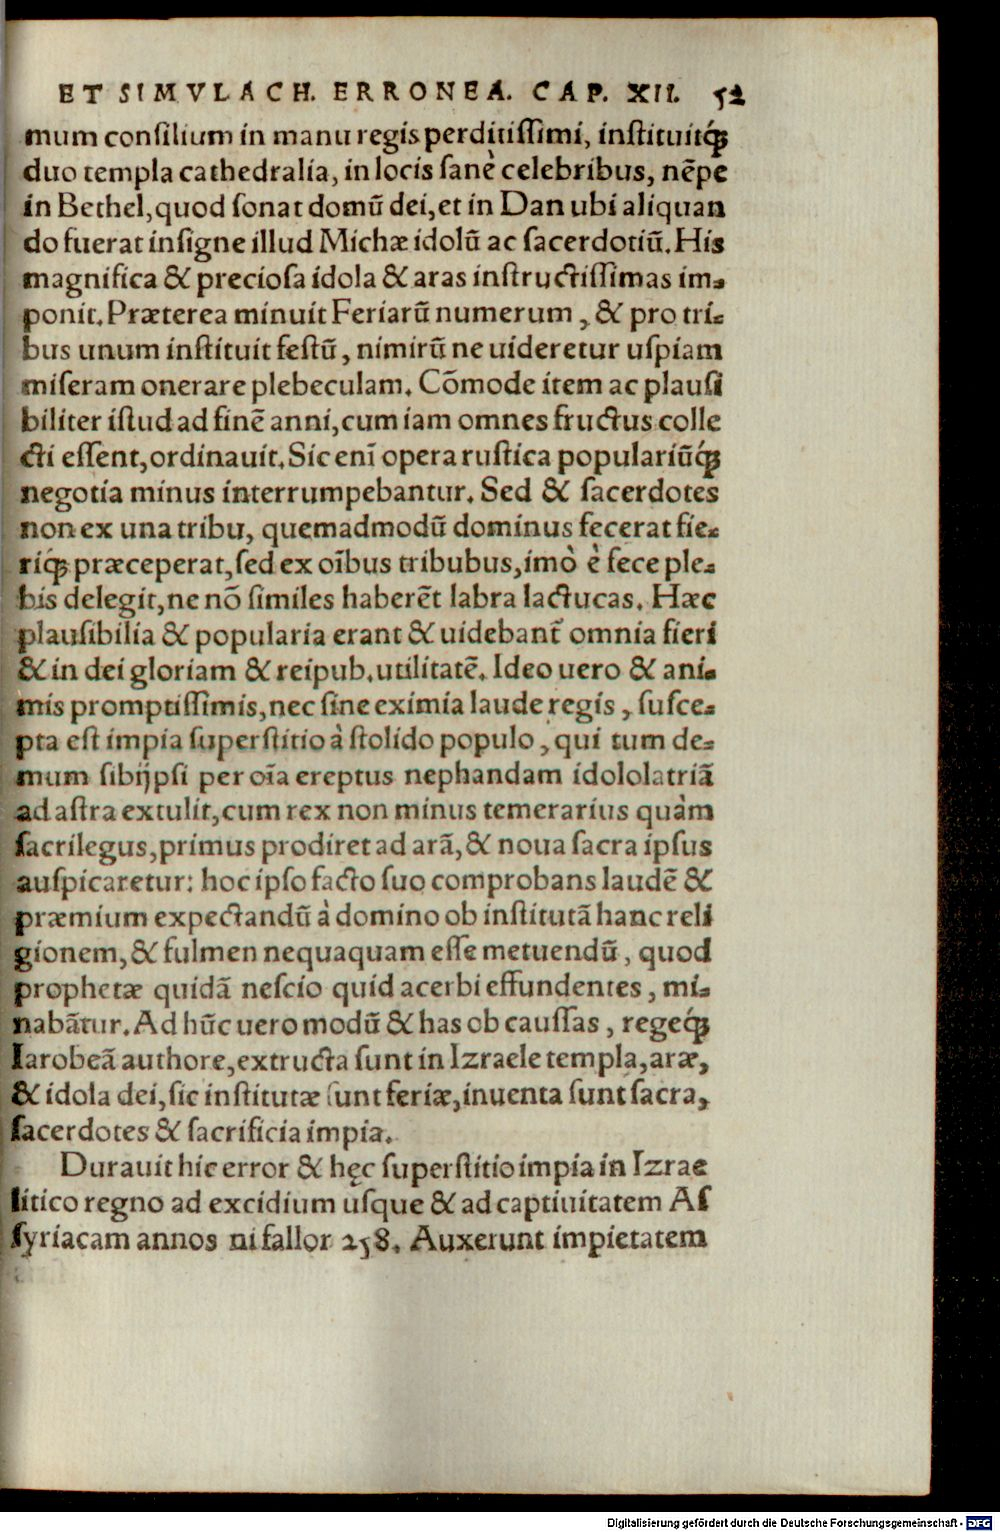 ET SIMVLACH. ERRONEA. CAP. XII. 52
mum consilium in manu regis perditissimi, instituitq́;
duo templa cathedralia, in locis sanè celebribus, nẽpe
in Bethel, quod sonat domũ dei, et in Dan ubi aliquan
do fuerat insigne illud Michæ idolũ ac sacerdotiũ. His
magnifica & preciosa idola & aras instructissimas im-
ponit. Præterea minuit Feriarũ numerum, & pro tri-
bus unum instituit festũ, nimirũ ne uideretur uspiam
miseram onerare plebeculam. Cõmode item ac plausi
biliter istud ad finẽ anni, cum iam omnes fructus colle
cti essent, ordinauit. Sic enĩ opera rustica populariũq́;
negotia minus interrumpebantur. Sed & sacerdotes
non ex una tribu, quemadmodũ dominus fecerat fie-
riq́; præceperat, sed ex oĩbus tribubus, imò è fece ple-
bis delegit, ne nõ similes haberẽt labra lactucas. Hæc
plausibilia & popularia erant & uidebant᷑ omnia fieri
& in dei gloriam & reipub. utilitatẽ. Ideo uero & ani-
mis promptissimis, nec sine eximia laude regis, susce-
pta est impia superstitio à stolido populo, qui tum de-
mum sibijpsi per oĩa ereptus nephandam idololatriã
ad astra extulit, cum rex non minus temerarius quàm
sacrilegus, primus prodiret ad arã, & noua sacra ipsus
auspicaretur: hoc ipso facto suo comprobans laudẽ &
præmium expectandũ à domino ob institutã hanc reli
gionem, & fulmen nequaquam esse metuendũ, quod
prophetæ quidã nescio quid acerbi effundentes, mi-
nabãtur. Ad hũc uero modũ & has ob caussas, regeq́;
Iarobeã authore, extructa sunt in Izraele templa, aræ,
& idola dei, sic institutæ sunt feriæ, inuenta sunt sacra,
sacerdotes & sacrificia impia.
Durauit hic error & hęc superstitio impia in Izrae
litico regno ad excidium usque & ad captiuitatem As
syriacam annos ni fallor 258. Auxerunt impietatem
Digitalisierung gefördert durch die Deutsche Forschungsgemeinschaft - DFG